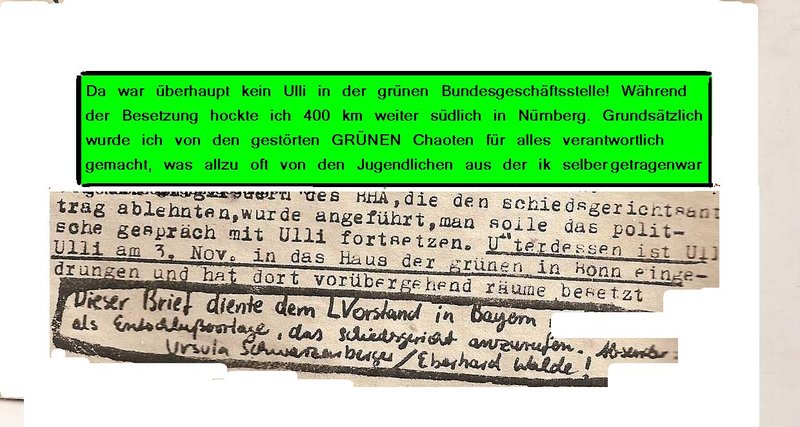 Da war überhaupt kein Ulli in der grünen Bundesgeschäftsstelle! Während
der Besetzung hockte ich 400 km weiter südlich in Nürnberg. Grundsätzlich
wurde ich von den gestörten GRÜNEN Chaoten für alles verantwortlich
gemacht, was allzu oft von den Jugendlichen aus der ik selber getragen war
des BHA, die den schiedsgerichtsant
trag ablehnten, wurde angeführt, man solle das polit-
sche gespräch mit Ulli fortsetzen. U terdessen ist Ull
Ulli am 3. Nov. in das Haus der grünen in Bonn einge-
drungen und hat dort vorübergehend räume besetzt
Dieser Brief diente dem LVorstand in Bayern
als Entschlußvorlage, das Schiedsgericht anzurufen. Absender:
Ursula Schwarzenberger / Eberhard Walde!